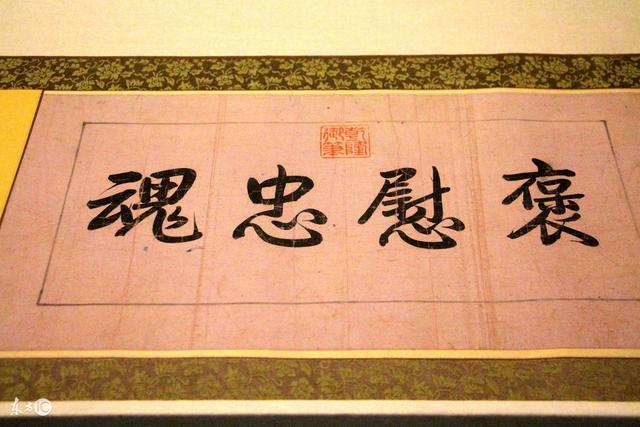 褒慰忠魂
乾隆御筆
东方IC